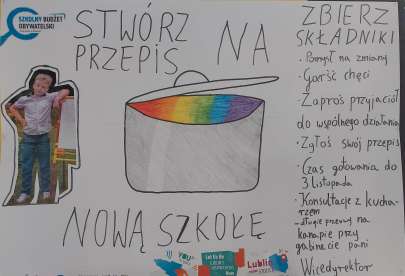 SZKOLNY BUDŻET
OBYWATELSKI
STWÓRZ
PRZEPIS NA
NOWĄ SZKOŁĘ
ZBIERZ
SKŁADNIKI
· Pomysł na zmiany
· Garść chęci
· Zaproś przyjaciół
do wspólnego działania
· Zgłoś swój przepis
· Czas gotowania do
3 listopada
· Konsultacje z kucha-
rzem
- długie przerwy na
kanapie przy
gabinecie pani
Wicedyrektor
YOU
Lublin